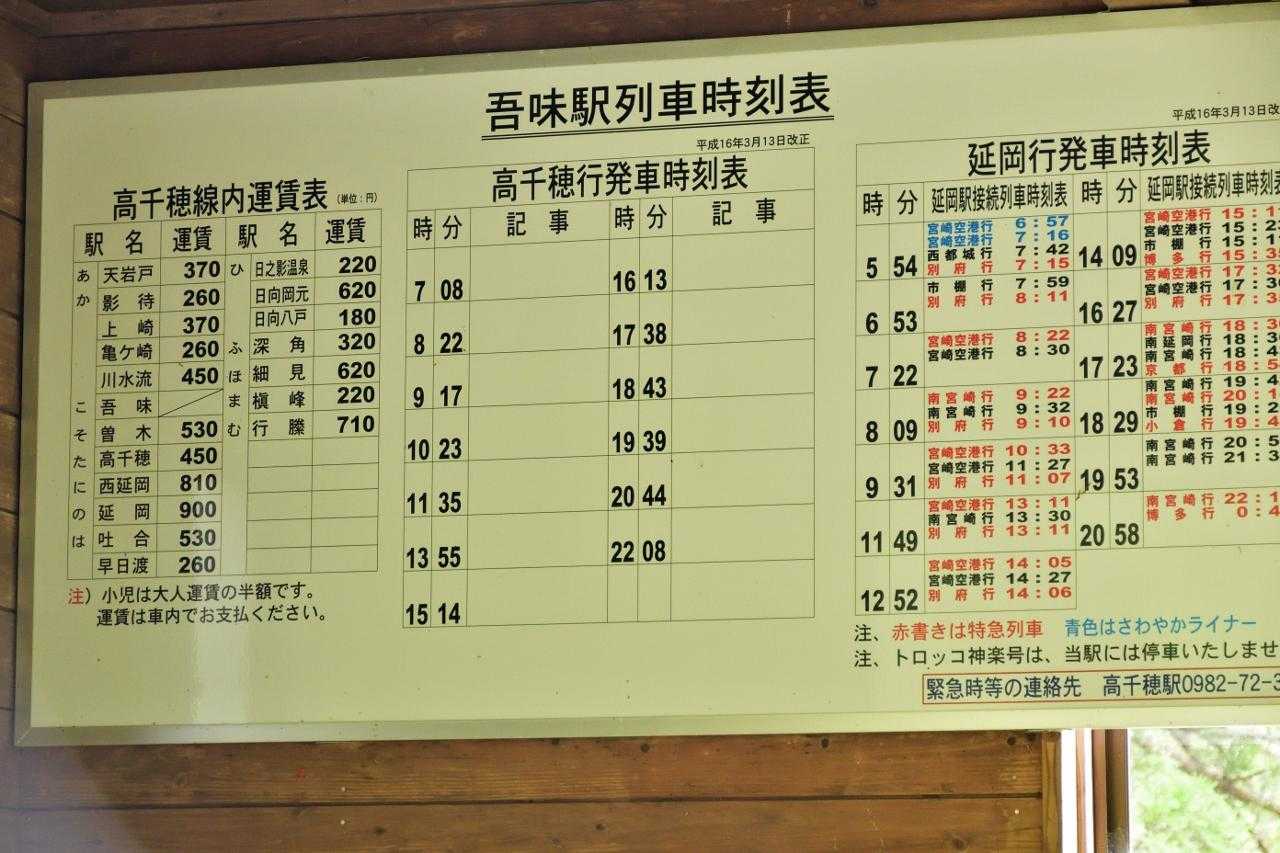 吾味駅列車時刻表
平成16年3月13日改正
高千穂線内運賃表 (単位:円)
駅名 運賃 駅名 運賃
あ 天岩戸 370 ひ 日之影温泉 220
か 影待 260 日向岡元 620
上崎 370 日向八戸 180
亀ケ崎 260 ふ 深角 320
川水流 450 ほ 細見 620
こ 吾味 ま 槇峰 220
そ 曽木 530 む 行縢 710
た 高千穂 450
に 西延岡 810
の 延岡 900
は 吐合 530
早日渡 260
注) 小児は大人運賃の半額です。
運賃は車内でお支払ください。
高千穂行発車時刻表
時 分 記事 時 分 記事
7 08 16 13
8 22 17 38
9 17 18 43
10 23 19 39
11 35 20 44
13 55 22 08
15 14
平成16年3月13日改
延岡行発車時刻表
時 分 延岡駅接続列車時刻表 時 分 延岡駅接続列車時刻表
5 54
宮崎空港行 6:57
宮崎空港行 7:16
西都城行 7:42
別府行 7:15
6 53
市棚行 7:59
別府行 8:11
7 22
宮崎空港行 8:22
宮崎空港行 8:30
8 09
南宮崎行 9:22
南宮崎行 9:32
別府行 9:10
9 31
宮崎空港行 10:33
宮崎空港行 11:27
別府行 11:07
11 49
宮崎空港行 13:11
南宮崎行 13:30
別府行 13:11
12 52
宮崎空港行 14:05
宮崎空港行 14:27
別府行 14:06
14 09
宮崎空港行 15:1
宮崎空港行 15:2
市棚行 15:1
博多行 15:3
16 27
宮崎空港行 17:3
宮崎空港行 17:3
別府行 17:3
17 23
南宮崎行 18:3
南延岡行 18:3
南宮崎行 18:4
京都行 18:5
18 29
南宮崎行 19:4
南宮崎行 20:1
市棚行 19:2
小倉行 19:4
19 53
南宮崎行 20:5
南宮崎行 21:3
20 58
南宮崎行 22:1
博多行 0:4
注、赤書きは特急列車 青色はさわやかライナー
注、トロッコ神楽号は、当駅には停車いたしませ
緊急時等の連絡先 高千穂駅0982-72-3